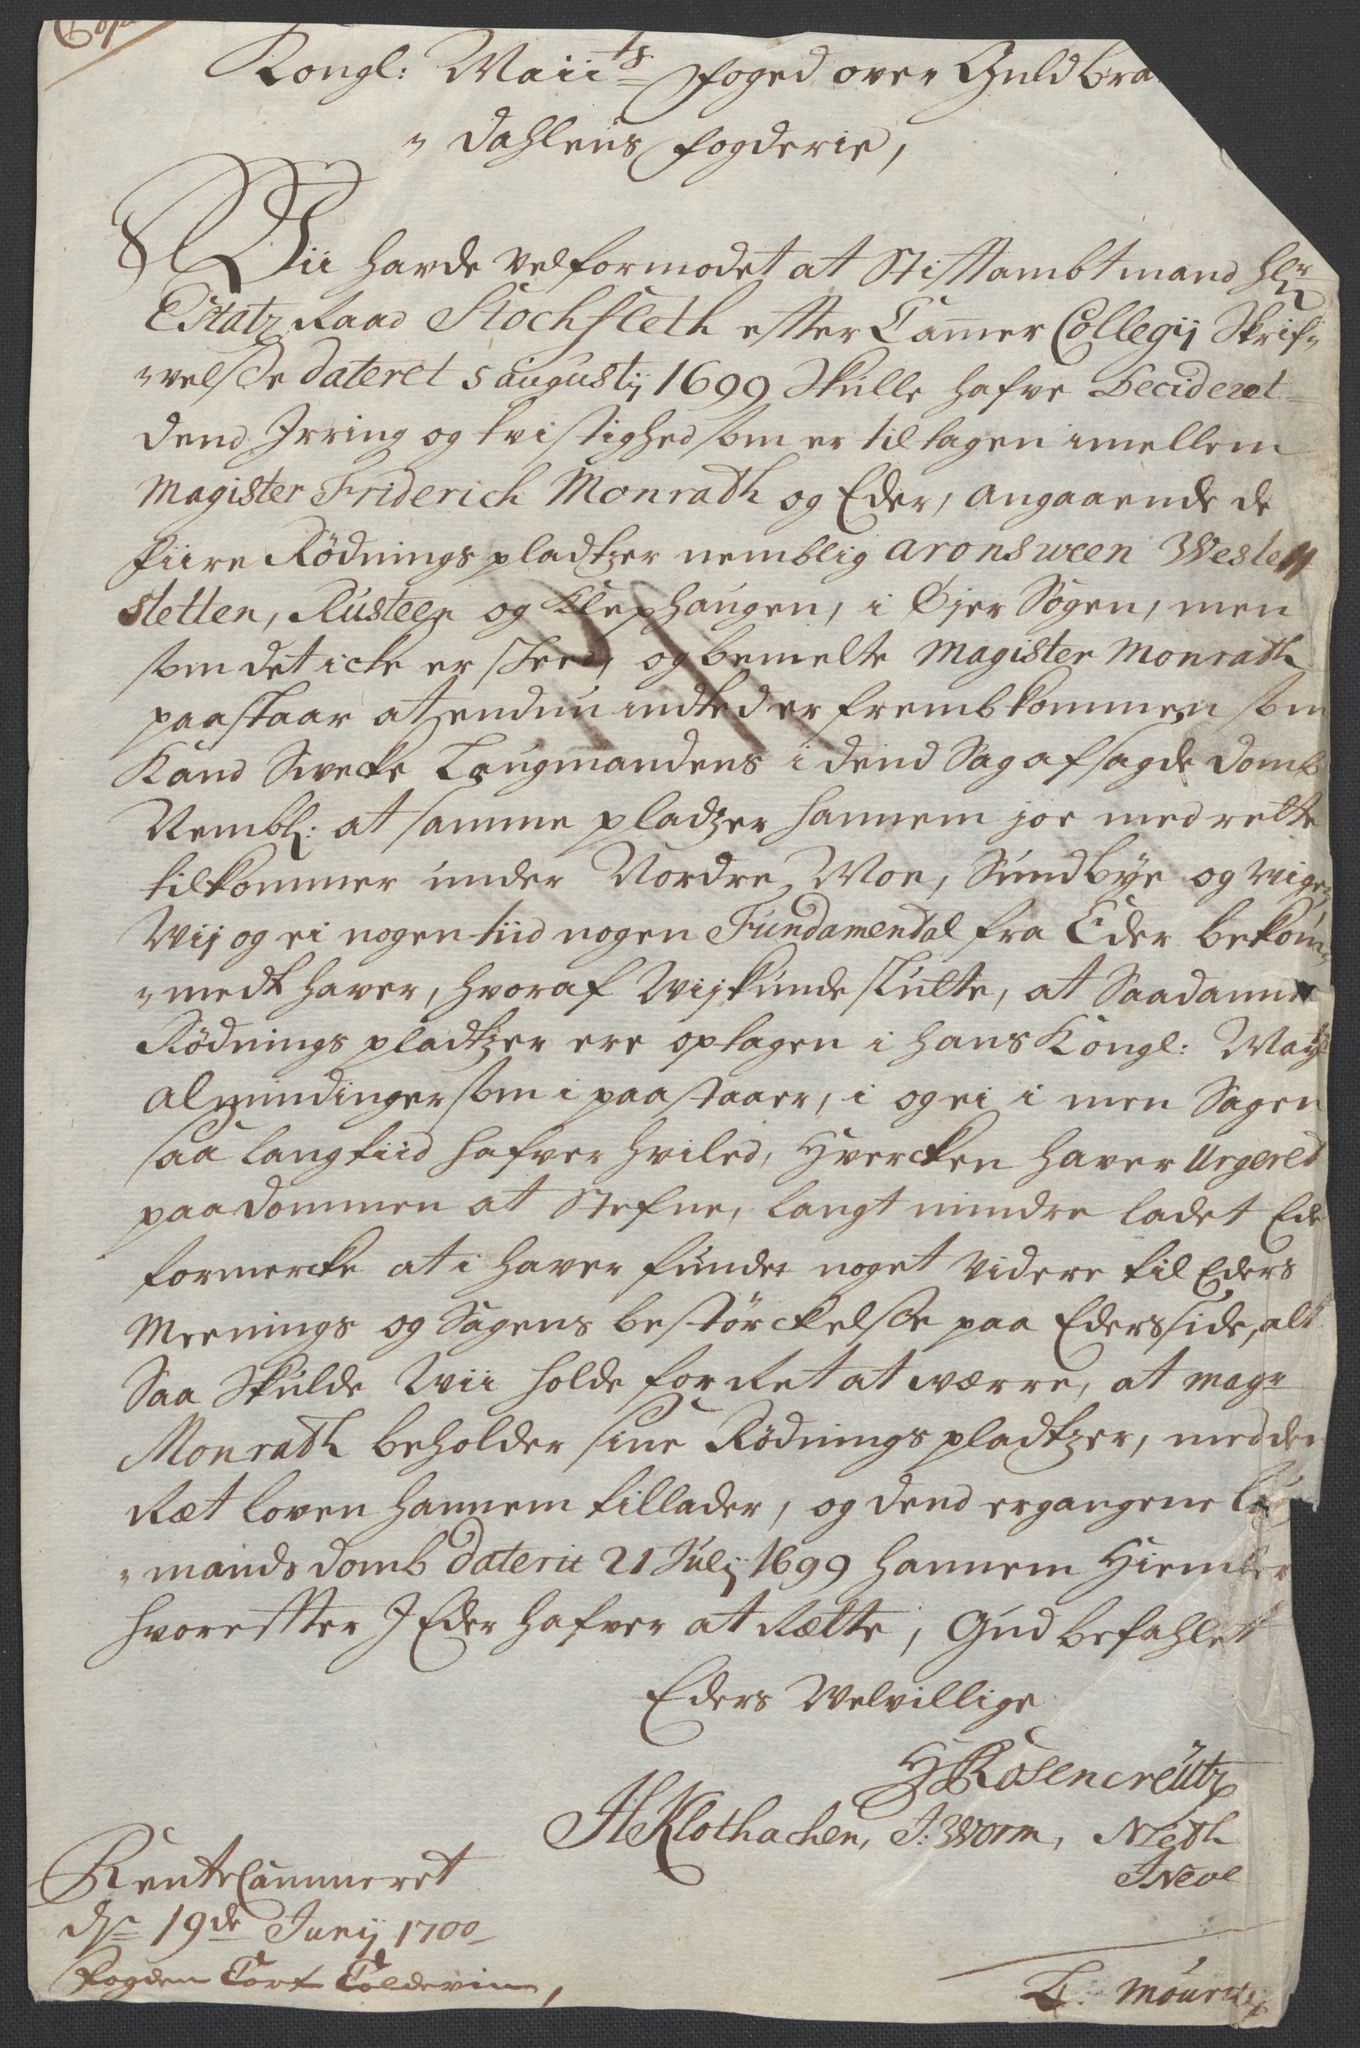 Copie
Kongl: Maii.ts foged over Guldbra
" dahlens fogderie,
Wii hafde velformodet at Stiftambtmand Hr
Etatz Raad Stochfleth efter Cammer Collegij Skrif"
"velse dateret 5 augustij 1699 Skulle hafve Decideret
dend Irring og tvistighed som er tiltagen imellem
Magister Friderich Monrath og Eder, angaaende de
fiire Rödnings pladtzer nemblig aronsween Westle
sletten, Rusteen og Klephaugen, i Öjer Sogen, men
som det icke er skeed, og bemelte Magister Monrath
paastaar at endnu indted er frembkommen som
Kand Svecke Laugmandens i dend Sag afsagde domb
Nembl: at samme pladzer hannem joe med rette
tilkommer under Nordre Moe, Sundbye og wigen,
Wij og ei nogen tiid nogen Fundamendal fra Eder bekom"
"medt haver, hvoraf Wij kunde slutte, at Saadanne
Rödnings pladtzer ere optagen i hans Kongl: May
Almindinger som i paastaaer, i og ei i men Sagen
saa lang tiid hafver hviled, Hvercken haver Urgered
paa dommen at Stefne, langt mindre ladet Ede
formercke at i haver funder noget videre til Eders
Meenings og Sagens bestörckelse paa Eders side, alt
Saa Skulde Wii holde for Ret at værre, at magr
Monrath beholder sine Rödnings pladtzer, med den
Ræt loven hannem tillader, og dend ergangene
"mands domb daterit 21 Julij 1699 hannem Hiembler
hvorefter I Eder hafver at Rætte, Gud befahlet
Eders Velvillige
H Rosencreütz
H Klothachen, J: Worm,
Rente Cammeret
ds 19de Junij 1700
fogden Tort Coldevin,
L. Mouritz